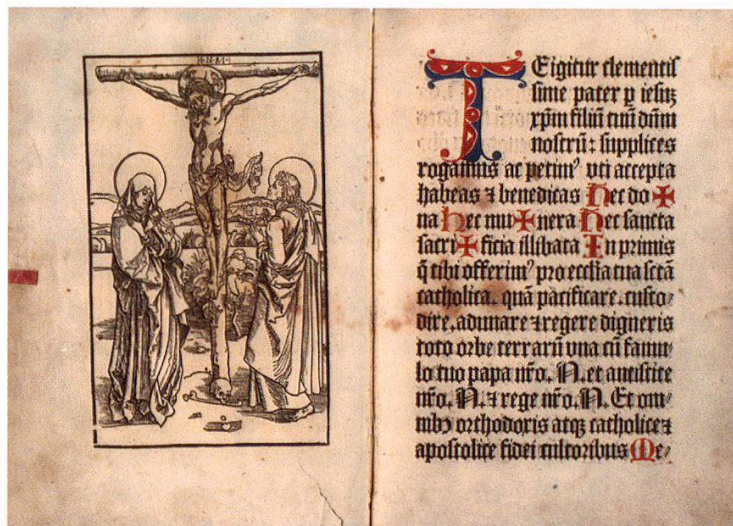 I·N·R·I
TEigitur clementis
sime pater ꝑ iesuꝫ
xp̄m filiū tuū dn̄m
nostrū: supplices
rogamus ac petimꝰ vti accepta
habeas ⁊ benedicas Hec do ✠
na Hec mu ✠ nera Hec sancta
sacri ✠ ficia illibata In primis
q̄ tibi offerimꝰ pro ecclīa tua sctā
catholica. quā pacificare. custo/
dire, adunare ⁊ regere digneris
toto orbe terrarū vna cū famu/
lo tuo papa nr̄o. N. et antistite
nr̄o. N. ⁊ rege nr̄o. N. Et om/
nibꝫ orthodoxis atqꝫ catholice ⁊
apostolice fidei cultoribus Me/